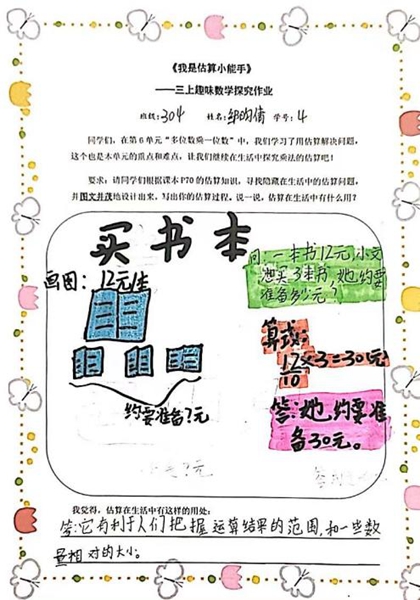 《我是估算小能手》
——三上趣味数学探究作业
班级：304 姓名： 学号：4
同学们，在第6单元“多位数乘一位数”中，我们学习了用估算解决问题，
这个也是本单元的重点和难点，让我们继续在生活中探究乘法的估算吧！
要求：请同学们根据课本P70的估算知识，寻找隐藏在生活中的估算问题，
并图文并茂地设计出来，写出你的估算过程，说一说，估算在生活中有什么用？
买书本
画图：12元/本
约要准备?元
问：一本书12元,小文
想买3本书,她约要
准备多少元?
算式：
12×3≈30(元)
10
答：她约要准
备30元。
我觉得，估算在生活中有这样的用处：
答:它有利于人们把握运算结果的范围,和一些数
量相对的大小。